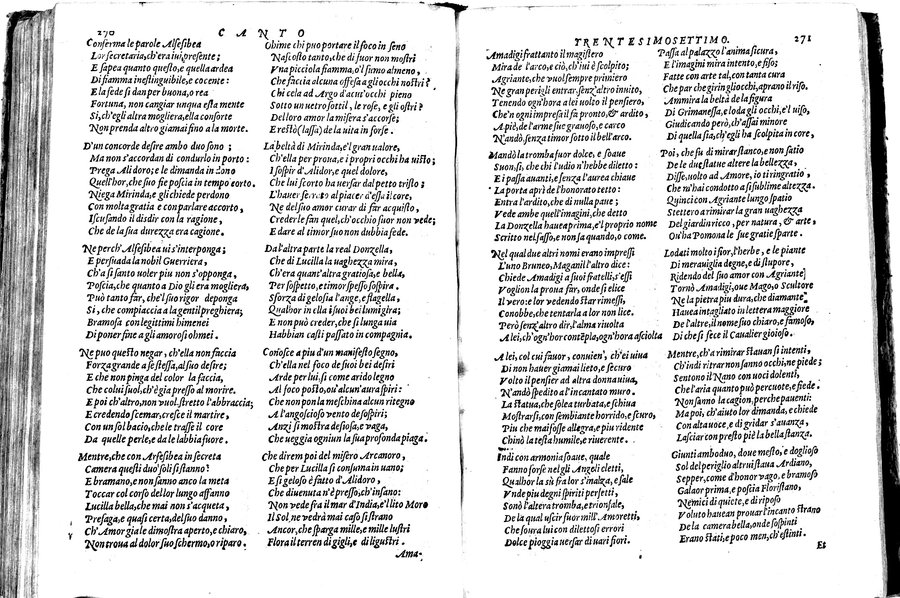 270 CANTO
Conferma le parole Alfesibea
Lor secretaria, ch'era ivi presente;
E sapea quanto questo, e quella ardea
Di fiamma inestinguibile, e cocente:
E la fede si dan per buona, o rea
Fortuna, non cangiar unqua esta mente
Si, ch'egli altra mogliera, ella consorte
Non prenda altro giamai fino a la morte.
D'un concorde desire ambo duo sono;
Ma non s'accordan di condurlo in porto:
Prega Alidoro; e le dimanda in dono
Quell'hor, che suo fie poscia in tempo corto.
Niega Mirinda, e gli chiede perdono
Con molta gratia e con parlare accorto,
Iscusando il disdir con la ragione,
Che de la sua durezza era cagione.
Ne perch'Alfesibea vi s'interponga;
E persuada la nobil Guerriera,
Ch'a si santo voler piu non s'opponga,
Poscia, che quanto a Dio gli era mogliera,
Può tanto far, che'l suo rigor deponga
Si, che compiaccia a la gentil preghiera;
Bramosa con legittimi himenei
Di poner fine a gli amorosi omei.
Ne può questo negar, ch'ella non faccia
Forza grande a se stessa, al suo desire;
E che non pinga del color la faccia,
Che colui suol, ch'è gia presso al morire.
E poi ch'altro, non vuol, stretto l'abbraccia;
E credendo scemar, cresce il martire,
Con un sol bacio, che le trasse il core
Da quelle perle, e da le labbia fuore.
Mentre, che con Arfesibea in secreta
Camera questi duo soli si stanno?
E bramano, e non sanno anco la meta
Toccar col corso del lor lungo affanno
Lucilla bella, che mai non s'acqueta,
Presaga, e quasi certa, del suo danno,
Ch'Amor gia le dimostra aperto, e chiaro,
Non trova al dolor suo schermo, o riparo.
Ohime chi può portare il foco in seno
Nascosto tanto, che di fuor non mostri
Una picciola fiamma, o'l fumo almeno,
Che faccia alcuna offesa a gli occhi nostri?
Chi cela ad Argo d'acut'occhi pieno
Sotto un vetro sottil, le rose, e gli ostri?
Del loro amor la misera s'accorse;
E restò (lassa) de la vita in forse.
La beltà di Mirinda, e'l gran valore,
Ch'ella per prova, e i propri occhi ha visto;
I sospir d'Alidor, e quel dolore,
Che lui scorto ha versar dal petto tristo;
L'haver servo al piacer d'essa il core,
Ne del suo amor curar di far acquisto,
Creder le fan quel, ch'occhio suor non vede;
E dare al timor suo non dubbia fede.
Da l'altra parte la real Donzella,
Che di Lucilla la vaghezza mira,
Ch'era quant'altra gratiosa, e bella,
Per sospetto, e timor spesso sospira.
Sforza di gelosia l'ange, e flagella,
Qualhor in ella i suoi bei lumi gira;
E non può creder, che si lunga via
Habbian casti passato in compagnia.
Conosce a piu d'un manifesto segno,
Ch'ella nel foco de' suoi bei desiri
Arde per lui, si come arido legno
Al foco posto, ov'alcun'aura spiri:
Che non pon la meschina alcun ritegno
A l'angoscioso vento de' sospiri;
Anzi si mostra desiosa, e vaga,
Che veggia ogniun la sua profonda piaga.
Che direm poi del misero Arcanoro,
Che per Lucilla si consuma in vano;
E si geloso è fatto d'Alidoro,
Che divenuta n'è presso, ch'insano:
Non vede fra il mar d'India, e'l lito Moro
Il Sol, ne vedrà mai caso si strano
Ancor, che sparga mille, e mille lustri
Flora il terren di gigli, e di ligustri.
Ama-
TRENTESIMOSETTIMO. 271
Amadigi frattanto il magistero
Mira de l'arco, e ciò, ch'ivi è scolpito;
Agriante, che vuol sempre priniero
Ne gran perigli entrar, senz'altro invito,
Tenendo ogn'hora a lei volto il pensiero,
Che'n ogni impresa il fa pronto, & ardito,
A piè, de l'arme sue gravoso, e carco
N'andò, senza timor sotto il bell'arco.
Mandò la tromba fuor dolce, e soave
Suon, si, che chi l'udio n'hebbe diletto:
E i passa avanti, e senza l'aurea chiave
La porta aprì de l'honorato tetto:
Entra l'ardito, che di nulla pave;
Vede ambe quell'imagini, che detto
La Donzella havea prima, e'l proprio nome
Scritto nel sasso, e non sa quando, o come.
Nel qual due altri nomi erano impressi
L'uno Bruneo, Maganil l'altro dice:
Chiede Amadigi a suoi fratelli, s'essi
Voglion la prova far, onde si elice
Il vero: e lor vedendo star rimessi,
Conobbe, che tentarla a lor non lice.
Però senz'altro dir, l'alma rivolta
A lei, ch'ogn'hor contempla, ogn'hora ascolta
A lei, col cui favor, convien', ch'ei viva
Di non haver giamai lieto, e securo
Volto il pensier ad altra donna viva,
N'andò spedito al l'incantato muro.
La statua, che solea turbata, e schiva
Mostrarsi, con sembiante horrido, e scuro,
Piu che mai fosse allegra, e piu ridente
Chinò la testa humile, e riverente.
Indi con armonia soave, quale
Fanno forse nel gli Angeli eletti,
Qualhor la su fra lor s'inalza, e sale
Un de piu degni spiriti perfetti,
Sonò l'altera tromba, e trionfale,
De la qual uscir fuor mill'Amoretti,
Che sovra lui con dilettosi errori
Dolce pioggia versar di vari fiori.
Passa al palazzo l'anima sicura,
E l'imagini mira intento, e fiso;
Fatte con arte tal, con tanta cura
Che par che girin gli occhi, aprano il riso.
Ammira la beltà de la figura
Di Grimanessa, e loda gli occhi, e'l viso,
Giudicando però, ch'assai minore
Di quella sia, ch'egli ha scolpita in core,
Poi, che fu di mirar stanco, e non satio
De le due statue altere la bellezza,
Disse, volto ad Amore, io ti ringratio,
Che m'hai condotto a si sublime altezza.
Quinci con Agriante lungo spatio
Stettero a rimirar la gran vaghezza
Del giardin ricco, per natura, & arte,
Ov'ha Pomona le sue gratie sparte.
Lodati molto i fior, l'herbe, e le piante
Di meraviglia degne, e di stupore,
Ridendo del suo amor con Agriante
Tornò Amadigi, ove Mago, o Scultore
Ne la pietra piu dura, che diamante
Havea intagliato in lettera maggiore
De l'altre, il nome suo chiaro, e famoso,
Di che si fece il Cavalier gioioso.
Mentre, ch'a rimirar stavan si intenti,
Ch'indi ritrar non sanno occhi, ne piede;
Sentono il Nano con voci dolenti,
Che l'aria quanto può percuote, e fiede.
Non sanno la cagion, perche paventi:
Ma poi, ch'aiuto lor dimanda, e chiede
Con alta voce, e di gridar s'avanza,
Lasciar con presto piè la bella stanza.
Giunti ambodue, dove mesto, e doglioso
Sol del periglio altrui stava Ardiano,
Sepper, come d'honor vago, e bramoso
Galaor prima, e poscia Floristano,
Nemici di quiete, e di riposo
Voluto havean provar l'incanto strano
De la camera bella, onde sospinti
Erano stati, e poco men, ch'estinti.
Et